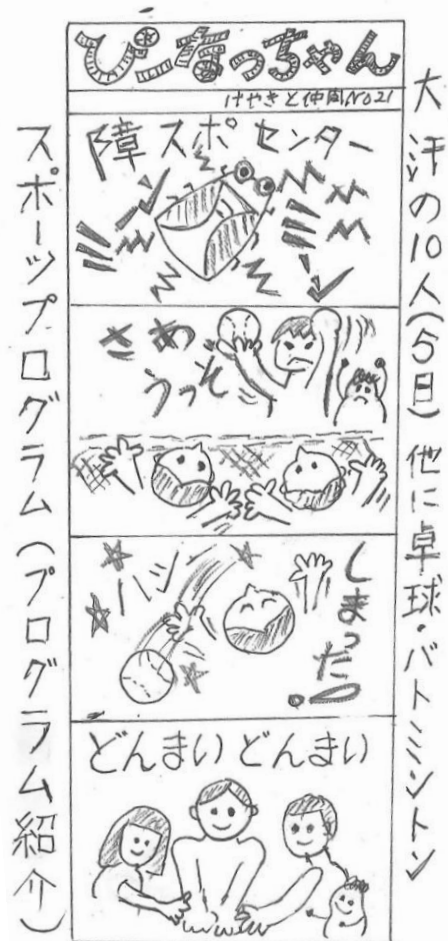 ぴーなっちゃん
けやきと仲間NO21
大汗の10人(5日)他に卓球・バトミントン
障スポセンター
さあ
うつぞ
バシ
しまった!
どんまいどんまい
スポーツプログラム(プログラム紹介)